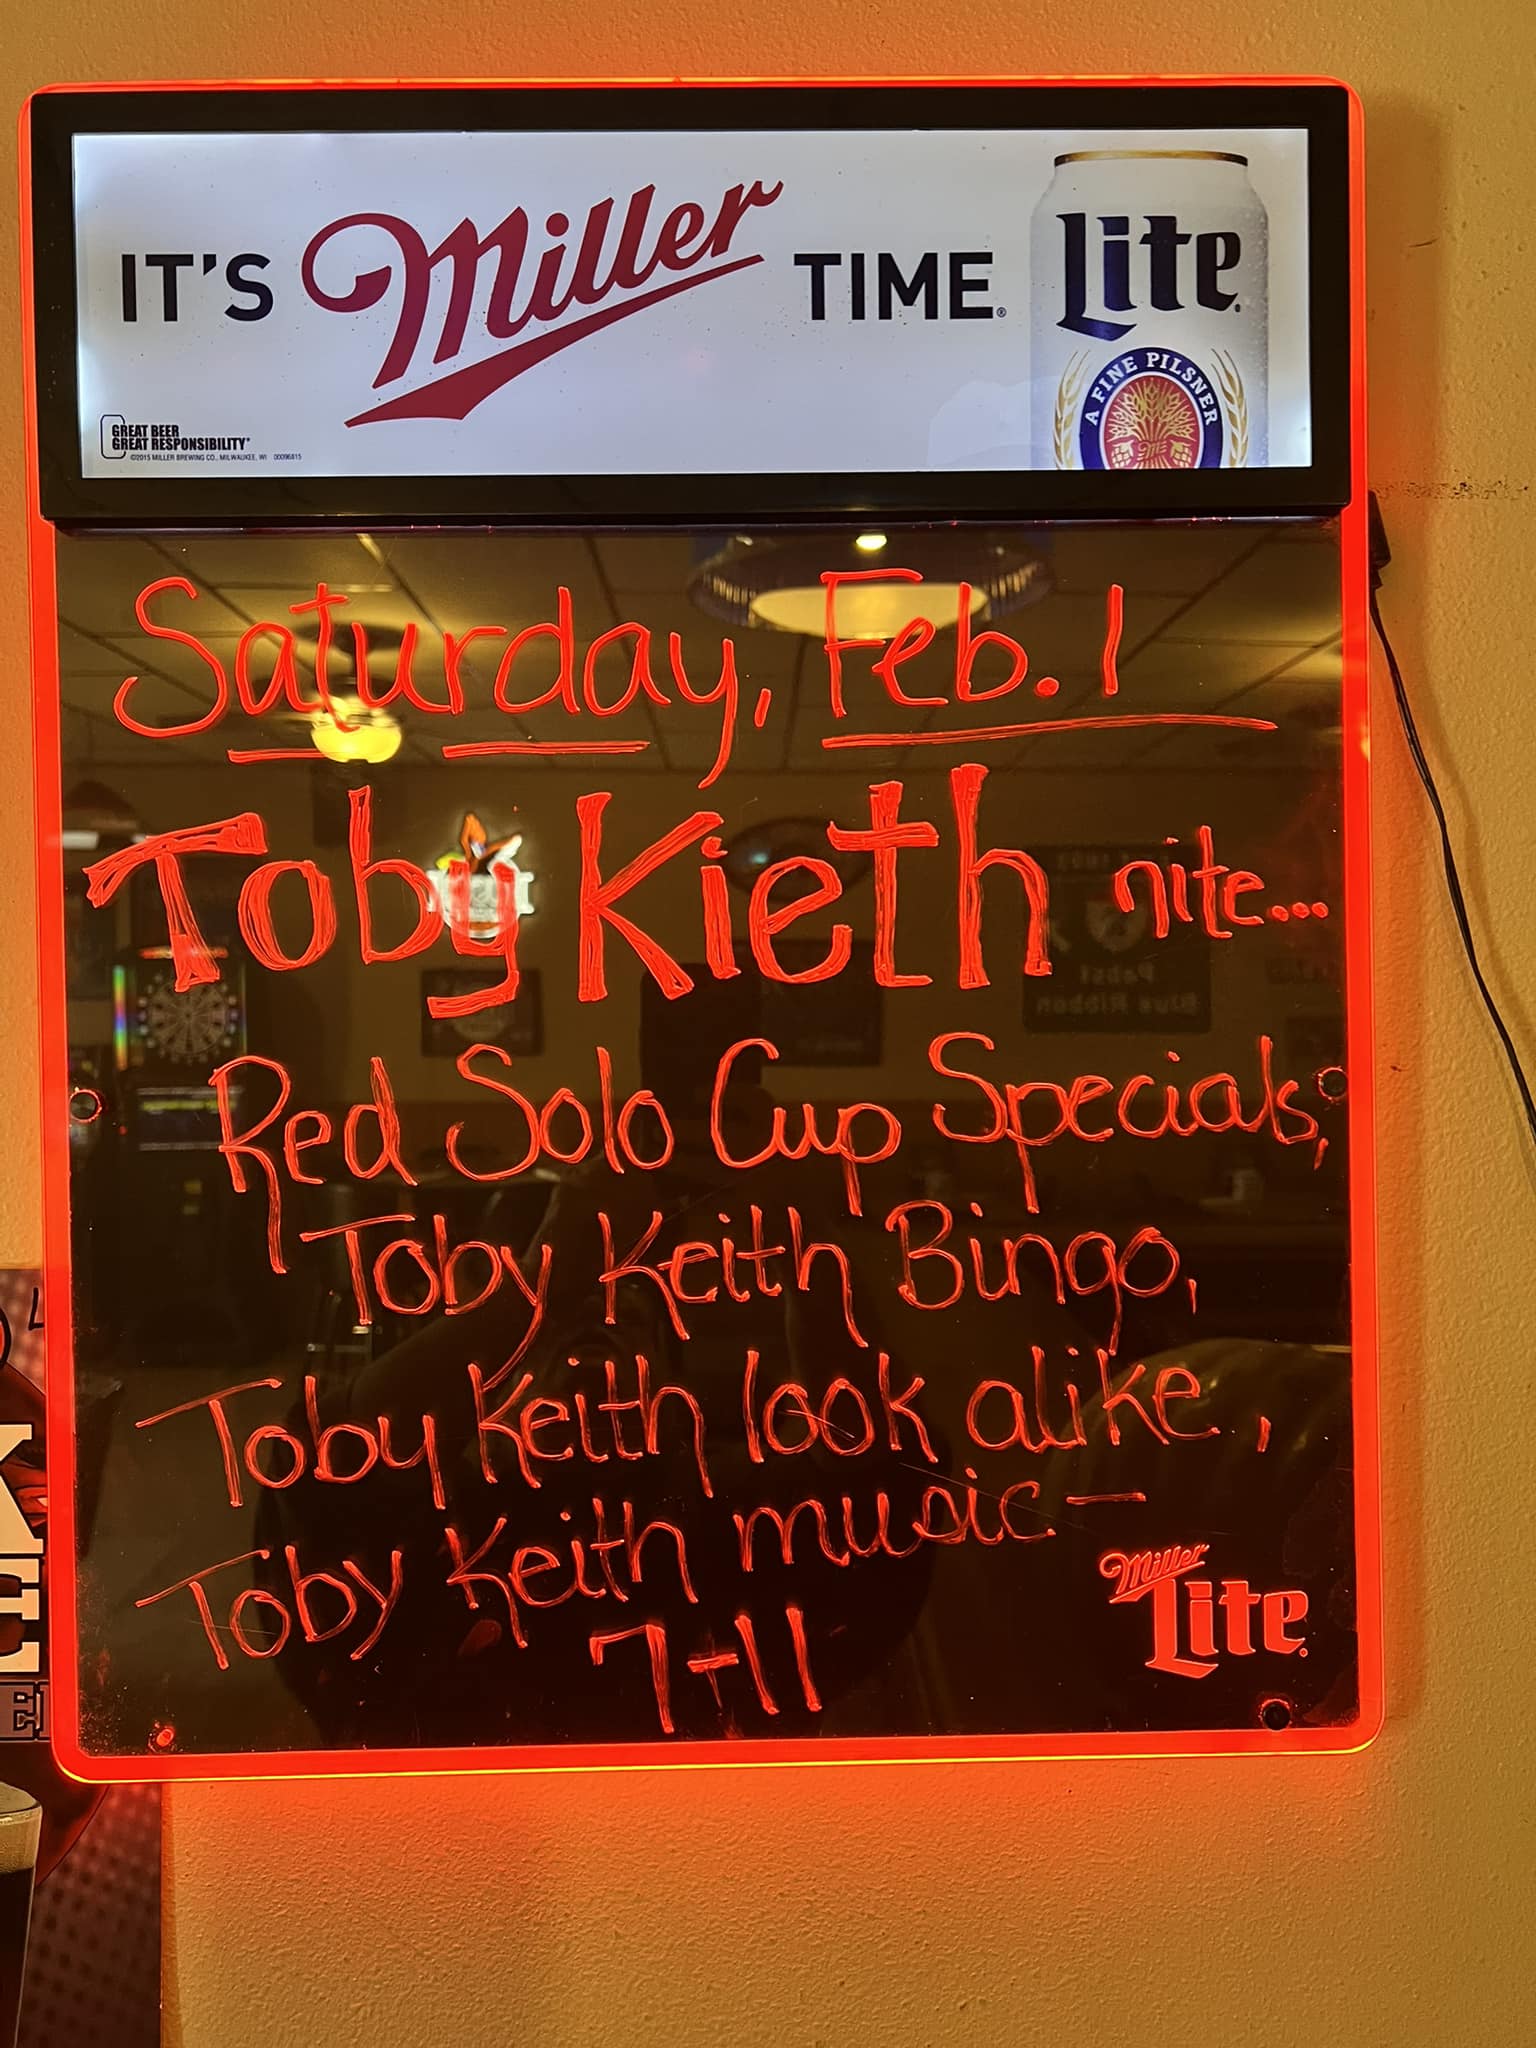 IT'S Miller TIME®
Lite
A FINE PILSNER
GREAT BEER
GREAT RESPONSIBILITY®
©2015 MILLER BREWING CO., MILWAUKEE, WI 00096815
Saturday, Feb. 1
Toby Kieth nite...
Red Solo Cup Specials,
Toby Keith Bingo,
Toby Keith look alike,
Toby Keith music-
7-11
Miller
Lite
Pabst
Blue Ribbon